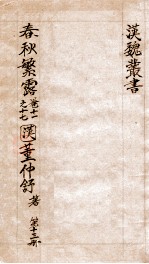 漢魏叢書
春秋繁露 卷十一之十七 漢 董仲舒 著 第十三册